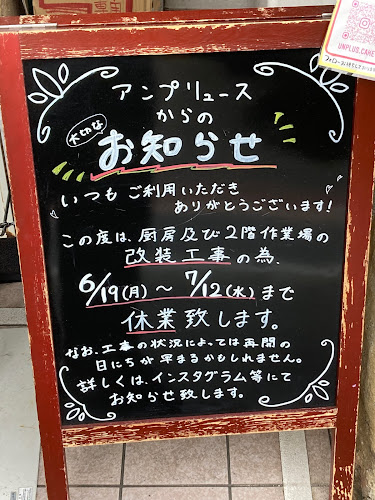 アンプリュース
からの
大切な
お知らせ
いつもご利用いただき
ありがとうございます!
この度は、厨房及び2階作業場の
改装工事の為、
6/19(月)～7/12(水)まで
休業致します。
なお、工事の状況によっては再開の
日にちが早まるかもしれません。
詳しくは、インスタグラム等にて
お知らせ致します。
UNPLUS.CAKE